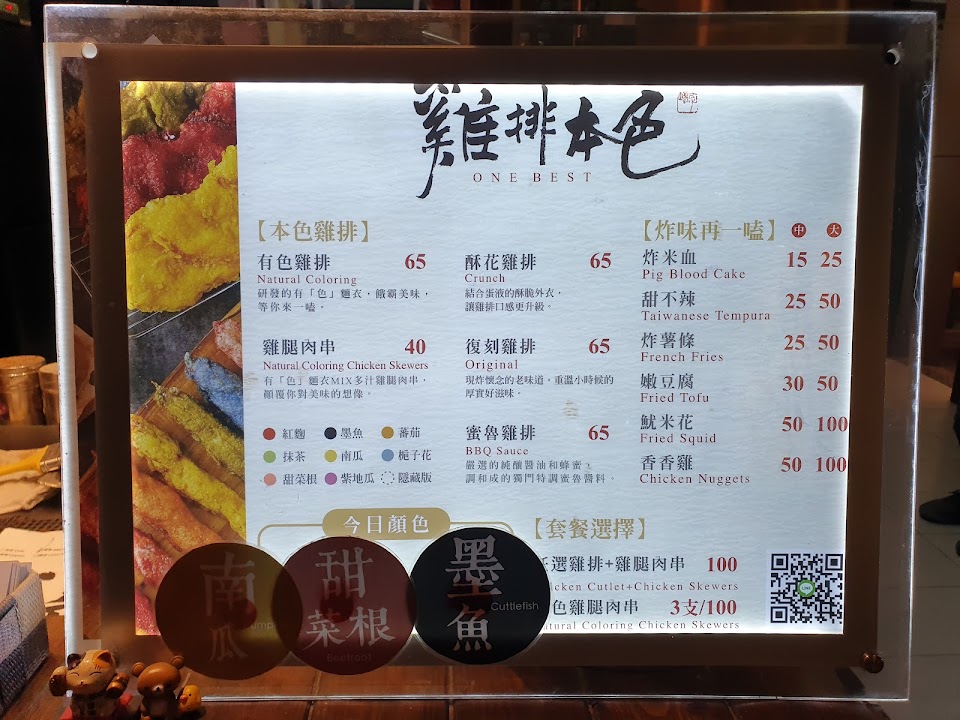 雞排本色
ONE BEST
【本色雞排】
有色雞排 65
Natural Coloring
研發的有「色」麵衣，饿霸美味，
等你來一嗑。
雞腿肉串 40
Natural Coloring Chicken Skewers
有「色」麵衣MIX多汁雞腿肉串，
顛覆你對美味的想像。
紅麴 墨魚 蕃茄
抹茶 南瓜 梔子花
甜菜根 紫地瓜 隱藏版
酥花雞排 65
Crunch
結合蛋液的酥脆外衣，
讓雞排口感更升級。
復刻雞排 65
Original
現炸懷念的老味道，重溫小時候的
厚實好滋味。
蜜魯雞排 65
BBQ Sauce
嚴選的純釀醬油和蜂蜜，
調和成的獨門特調蜜魯醬料。
【炸味再一嗑】 中 大
炸米血 15 25
Pig Blood Cake
甜不辣 25 50
Taiwanese Tempura
炸薯條 25 50
French Fries
嫩豆腐 30 50
Fried Tofu
魷米花 50 100
Fried Squid
香香雞 50 100
Chicken Nuggets
今日顏色
南瓜
甜菜根
Beetroot
墨魚
Cuttlefish
【套餐選擇】
選雞排+雞腿肉串 100
Cutlet+Chicken Skewers
色雞腿肉串 3支/100
Coloring Chicken Skewers
LINE